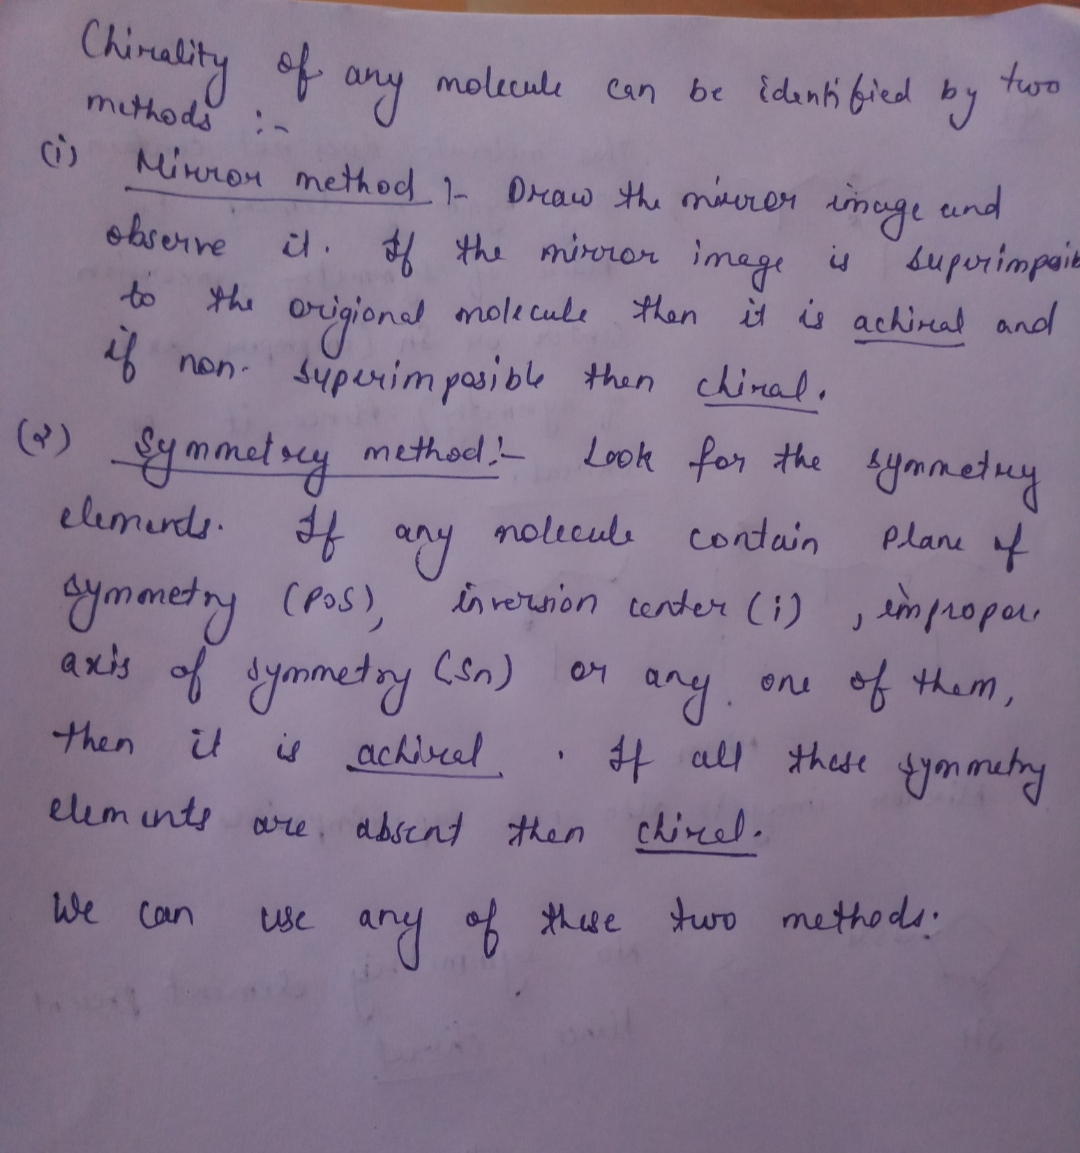 Chirality of any molecule can be identified by two
methods :-
(i) Mirror method :- Draw the mirror image and
observe it. If the mirror image is superimpoib
to the origional molecule then it is achiral and
if non- superimposible then chiral.
(2) Symmetry method:- Look for the symmetry
elements. If any molecule contain plane of
symmetry (POS), inversion center (i) , improper
axis of symmetry (Sn) or any one of them,
then it is achiral . If all these symmetry
elements are absent then chiral.
We can use any of these two methods.